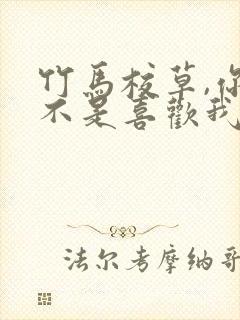 竹馬校草,你
不是喜歡我
法尔考摩纳哥